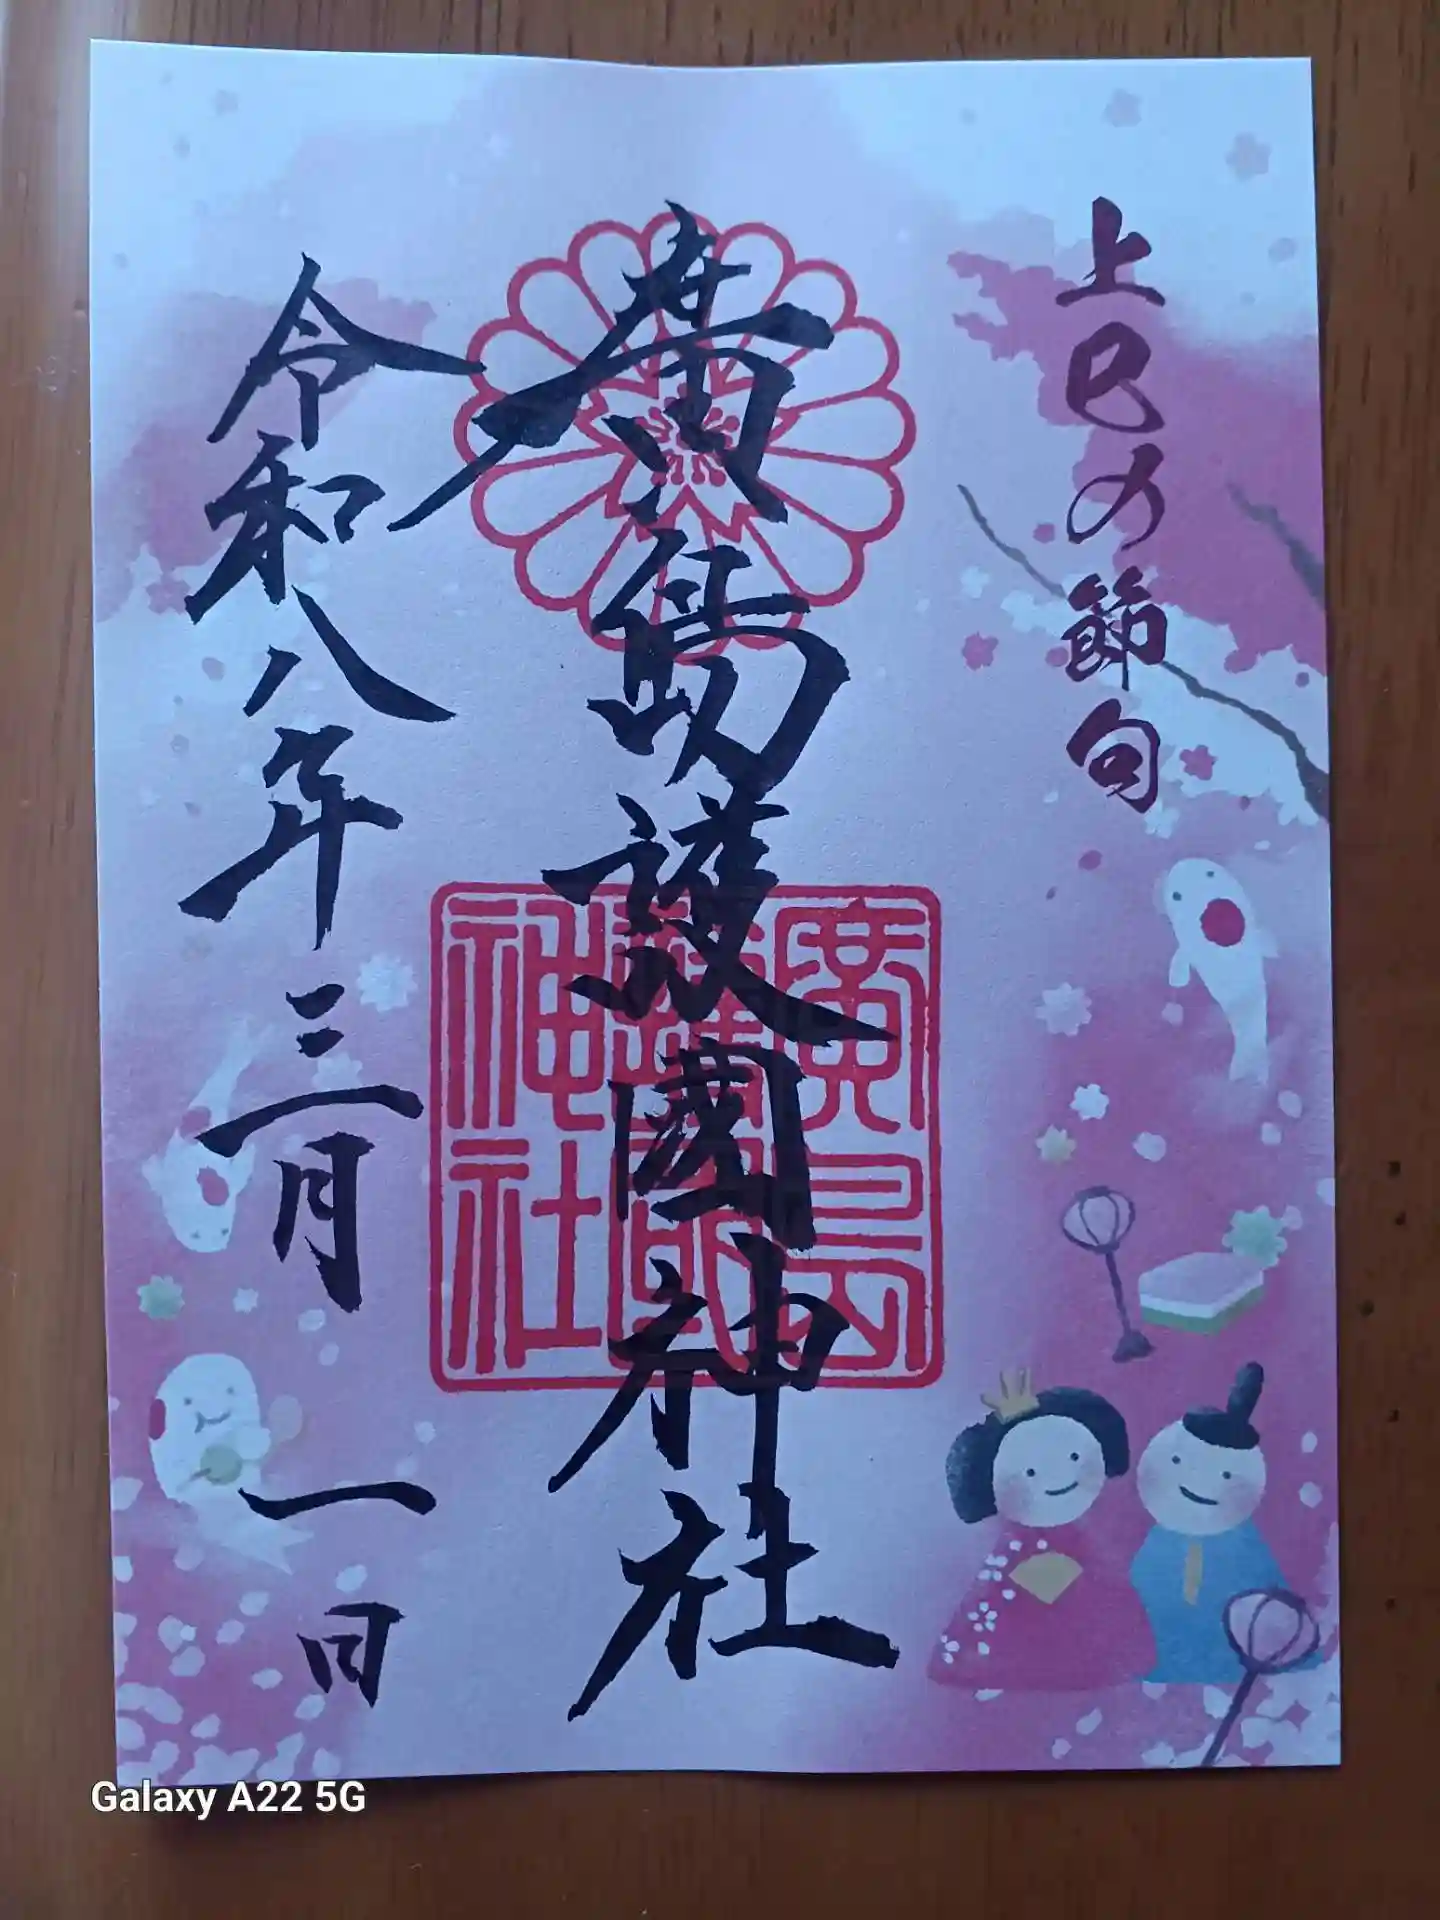 上巳の節句
廣島護國神社
廣島護國神社
令和八年三月一日
Galaxy A22 5G